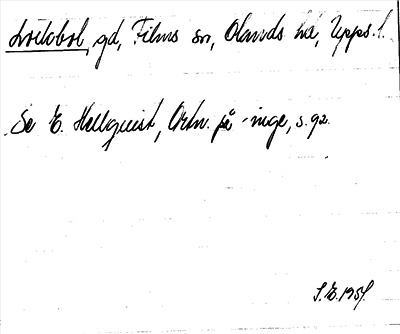 gd, Films sn, Olands hd, Upps. l.
Se E. Hellquist, Ortn. på -inge, s. 92.
S.E. 1957.